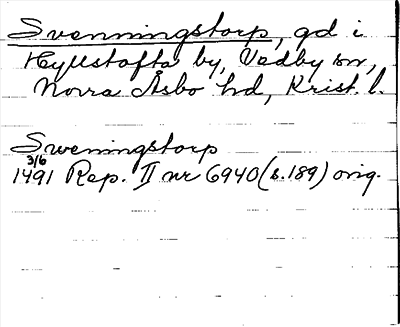 Svenningstorp, gd i
Hyllstofta by, Vedby sn,
Norra Åsbo hd, Krist. l.
Sweningstorp
3/6
1491 Rep. II nr 6940 (s. 189) orig.